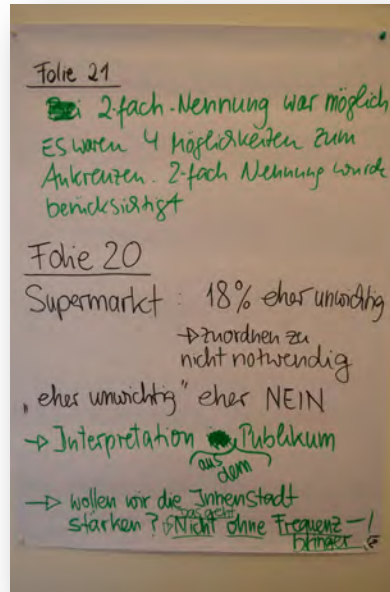 Folie 21
2-fach-Nennung war möglich
ES waren 4 Möglichkeiten zum
Ankreuzen. 2-fach Nennung wurde
berücksichtigt
Folie 20
Supermarkt : 18% eher unwichtig
→ zuordnen zu
nicht notwendig
„eher unwichtig" eher NEIN
→ Interpretation aus dem Publikum
→ wollen wir die Innenstadt
stärken? das geht Nicht ohne Frequenz-
bringer